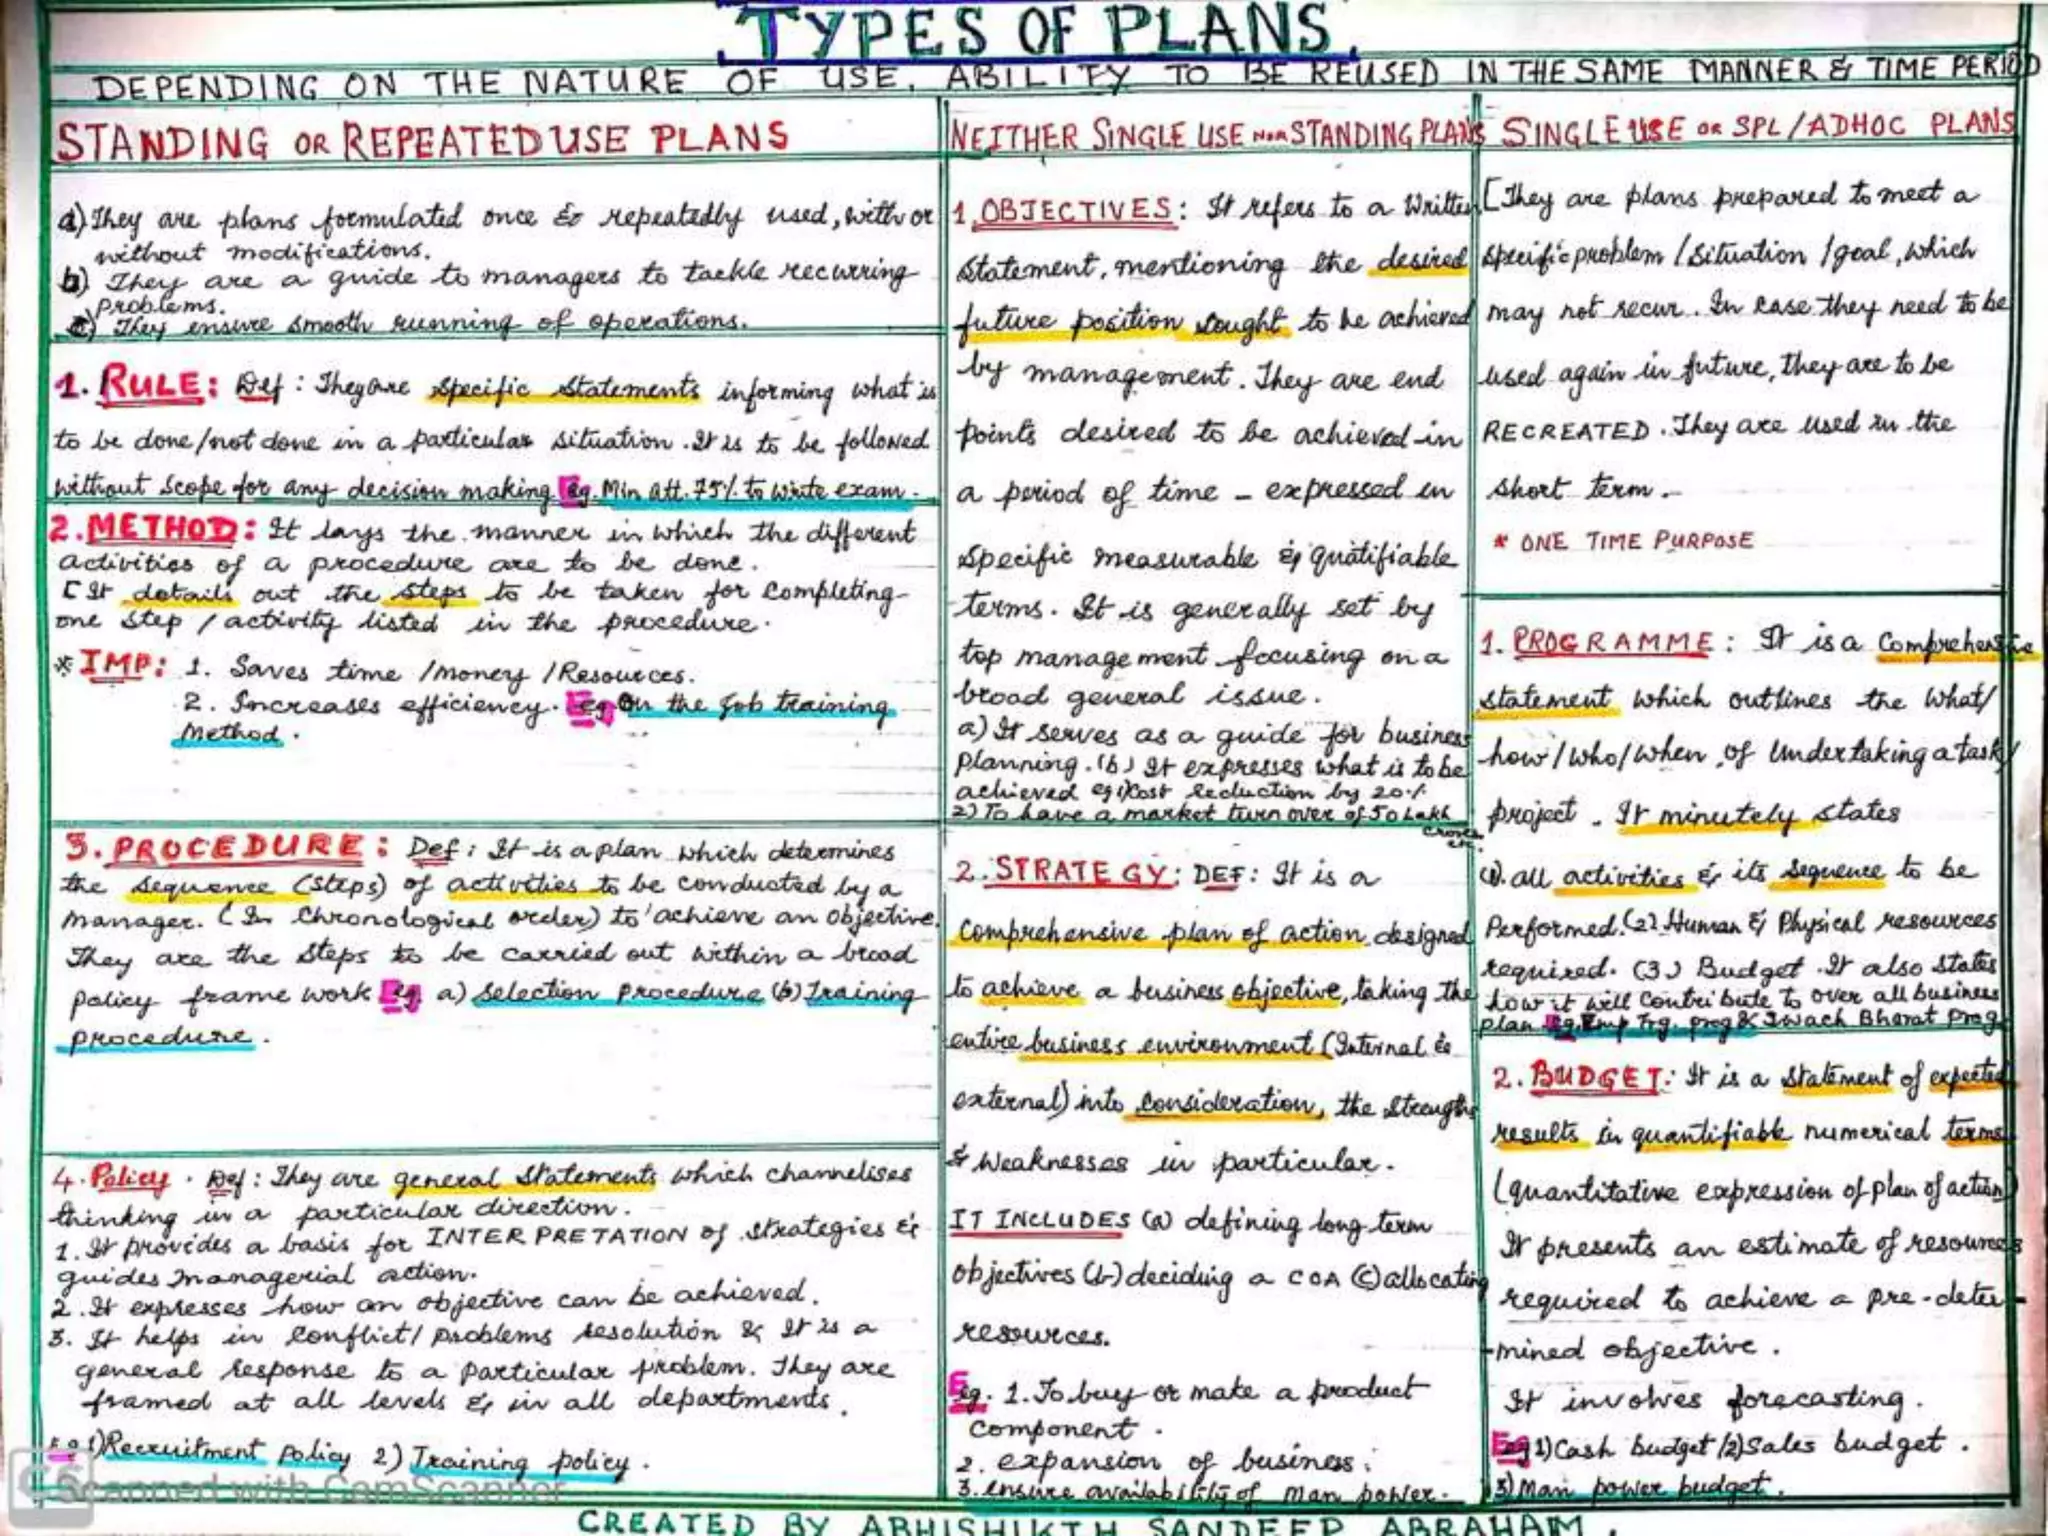 TYPES OF PLANS.
DEPENDING ON THE NATURE OF USE, ABILITY TO BE REUSED IN THE SAME MANNER & TIME PERIOD
STANDING OR REPEATED USE PLANS
a) They are plans formulated once & repeatedly used, with or
without modifications.
b) They are a guide to managers to tackle recurring
problems.
c) They ensure smooth running of operations.
1. RULE: Def: They are specific statements informing what is
to be done/not done in a particular situation. It is to be followed
without scope for any decision making Eg. Min att. 75% to write exam.
2. METHOD: It lays the manner in which the different
activities of a procedure are to be done.
[It details out the steps to be taken for completing
one step / activity listed in the procedure.
* IMP: 1. Saves time /money /Resources.
2. Increases efficiency. Eg On the job training
Method.
3. PROCEDURE: Def: It is a plan which determines
the sequence (steps) of activities to be conducted by a
manager. (In chronological order) to achieve an objective.
They are the steps to be carried out within a broad
policy frame work Eg. a) Selection procedure (b) Training
procedure.
4. Policy. Def: They are general statements which channelises
thinking in a particular direction.
1. It provides a basis for INTERPRETATION of strategies &
guides managerial action.
2. It expresses how an objective can be achieved.
3. It helps in conflict/ problems resolution & It is a
general response to a particular problem. They are
framed at all levels & in all departments.
Eg 1) Recruitment policy 2) Training policy.
NEITHER SINGLE USE NOR STANDING PLANS
1. OBJECTIVES: It refers to a written
statement, mentioning the desired
future position sought to be achieved
by management. They are end
points desired to be achieved in
a period of time - expressed in
specific measurable & quatifiable
terms. It is generally set by
top management focusing on a
broad general issue.
a) It serves as a guide for business
planning. (b) It expresses what is to be
achieved eg 1) Cost reduction by 20%
2) To have a market turn over of 50 Lakh
crores etc.
2. STRATEGY: DEF: It is a
comprehensive plan of action designed
to achieve a business objective, taking the
entire business environment (Internal &
external) into consideration, the strengths
& weaknesses in particular.
IT INCLUDES (a) defining long term
objectives (b) deciding a COA (c) allocating
resources.
Eg. 1. To buy or make a product
component.
2. expansion of business.
3. ensure availability of man power.
SINGLE USE OR SPL/ADHOC PLANS
[They are plans prepared to meet a
specific problem /situation /goal, which
may not recur. In case they need to be
used again in future, they are to be
RECREATED. They are used in the
short term.
* ONE TIME PURPOSE
1. PROGRAMME: It is a comprehensive
statement which outlines the what/
how/who/when, of undertaking a task/
project. It minutely states
(1). all activities & its sequence to be
performed. (2) Human & Physical resources
required. (3) Budget. It also states
how it will contribute to over all business
plan Eg. Emp Trg. prog & Swach Bharat Prog
2. BUDGET: It is a statement of expected
results in quantifiable numerical terms
(quantitative expression of plan of action)
It presents an estimate of resources
required to achieve a pre-deter-
-mined objective.
It involves forecasting.
Eg 1) Cash budget /2) Sales budget.
3) Man power budget.
CS Scanned with CamScanner
CREATED BY ABHISHIKTH SANDEEP ABRAHAM.